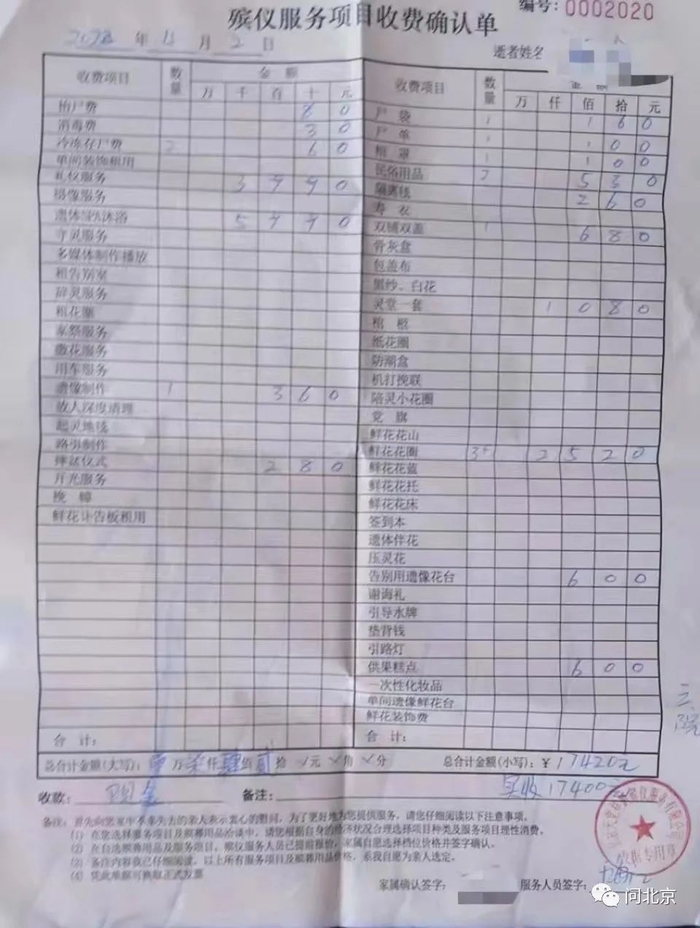 殡仪服务项目收费确认单
编号: 0002020
年 月 2 日
逝者姓名
收费项目 数量 金额 万 千 百 十 元
抬尸费 8 0
消毒费 3 0
冷冻存尸费 2 6 0
单间装饰租用
礼仪服务 3 9 9 0
摄像服务
遗体SPA沐浴 5 9 9 0
守灵服务
多媒体制作播放
租告别室
辞灵服务
租花圈
家祭服务
撒花服务
用车服务
遗像制作 1 3 6 0
故人深度清理
起灵地毯
路引制作
摔盆仪式 2 8 0
开光服务
挽幛
鲜花讣告板租用
合计:
收费项目 数量 金额 万 仟 佰 拾 元
尸袋 1 1 6 0
尸单 1 1 0 0
棺罩 1 1 0 0
民俗用品 2 5 3 0
隔离毯 2 6 0
寿衣
双铺双盖 1 6 8 0
骨灰盒
包盖布
黑纱、白花
灵堂一套 1 0 8 0
棺柩
纸花圈
防潮盒
机打挽联
陪灵小花圈
党旗
鲜花花山
鲜花花圈 2 5 2 0
鲜花花篮
鲜花花托
鲜花花床
签到本
遗体伴花
压灵花
告别用遗像花台 6 0 0
谢海礼
引导水牌
垫背钱
引路灯
供果糕点 6 0 0
一次性化妆品
单间遗像鲜花台
鲜花装饰费
合计:
总合计金额(大写): 万 仟 佰贰拾 元 角 分 总合计金额(小写): ¥17420元
实收17400元
收款: 现金 备注:
备注: 首先向您至申本家失去的亲人表示衷心的慰问,为了更好地为您提供服务,请您仔细阅读以下注意事项。
(1) 在您选择服务项目及殡葬用品洽谈中,请您根据自身的经济状况合理选择项目种类及服务项目理性消费。
(2) 在自选殡葬用品及服务项目,殡仪服务人员已提前报价,家属自愿选择档位价格并签字确认。
(3) 备注内容我已仔细阅读,以上所有服务项目及殡葬用品价格,系我自愿为亲人选定。
(4) 凭此单据可换取正式发票
家属确认签字: 服务人员签字:
收据专用章
问北京